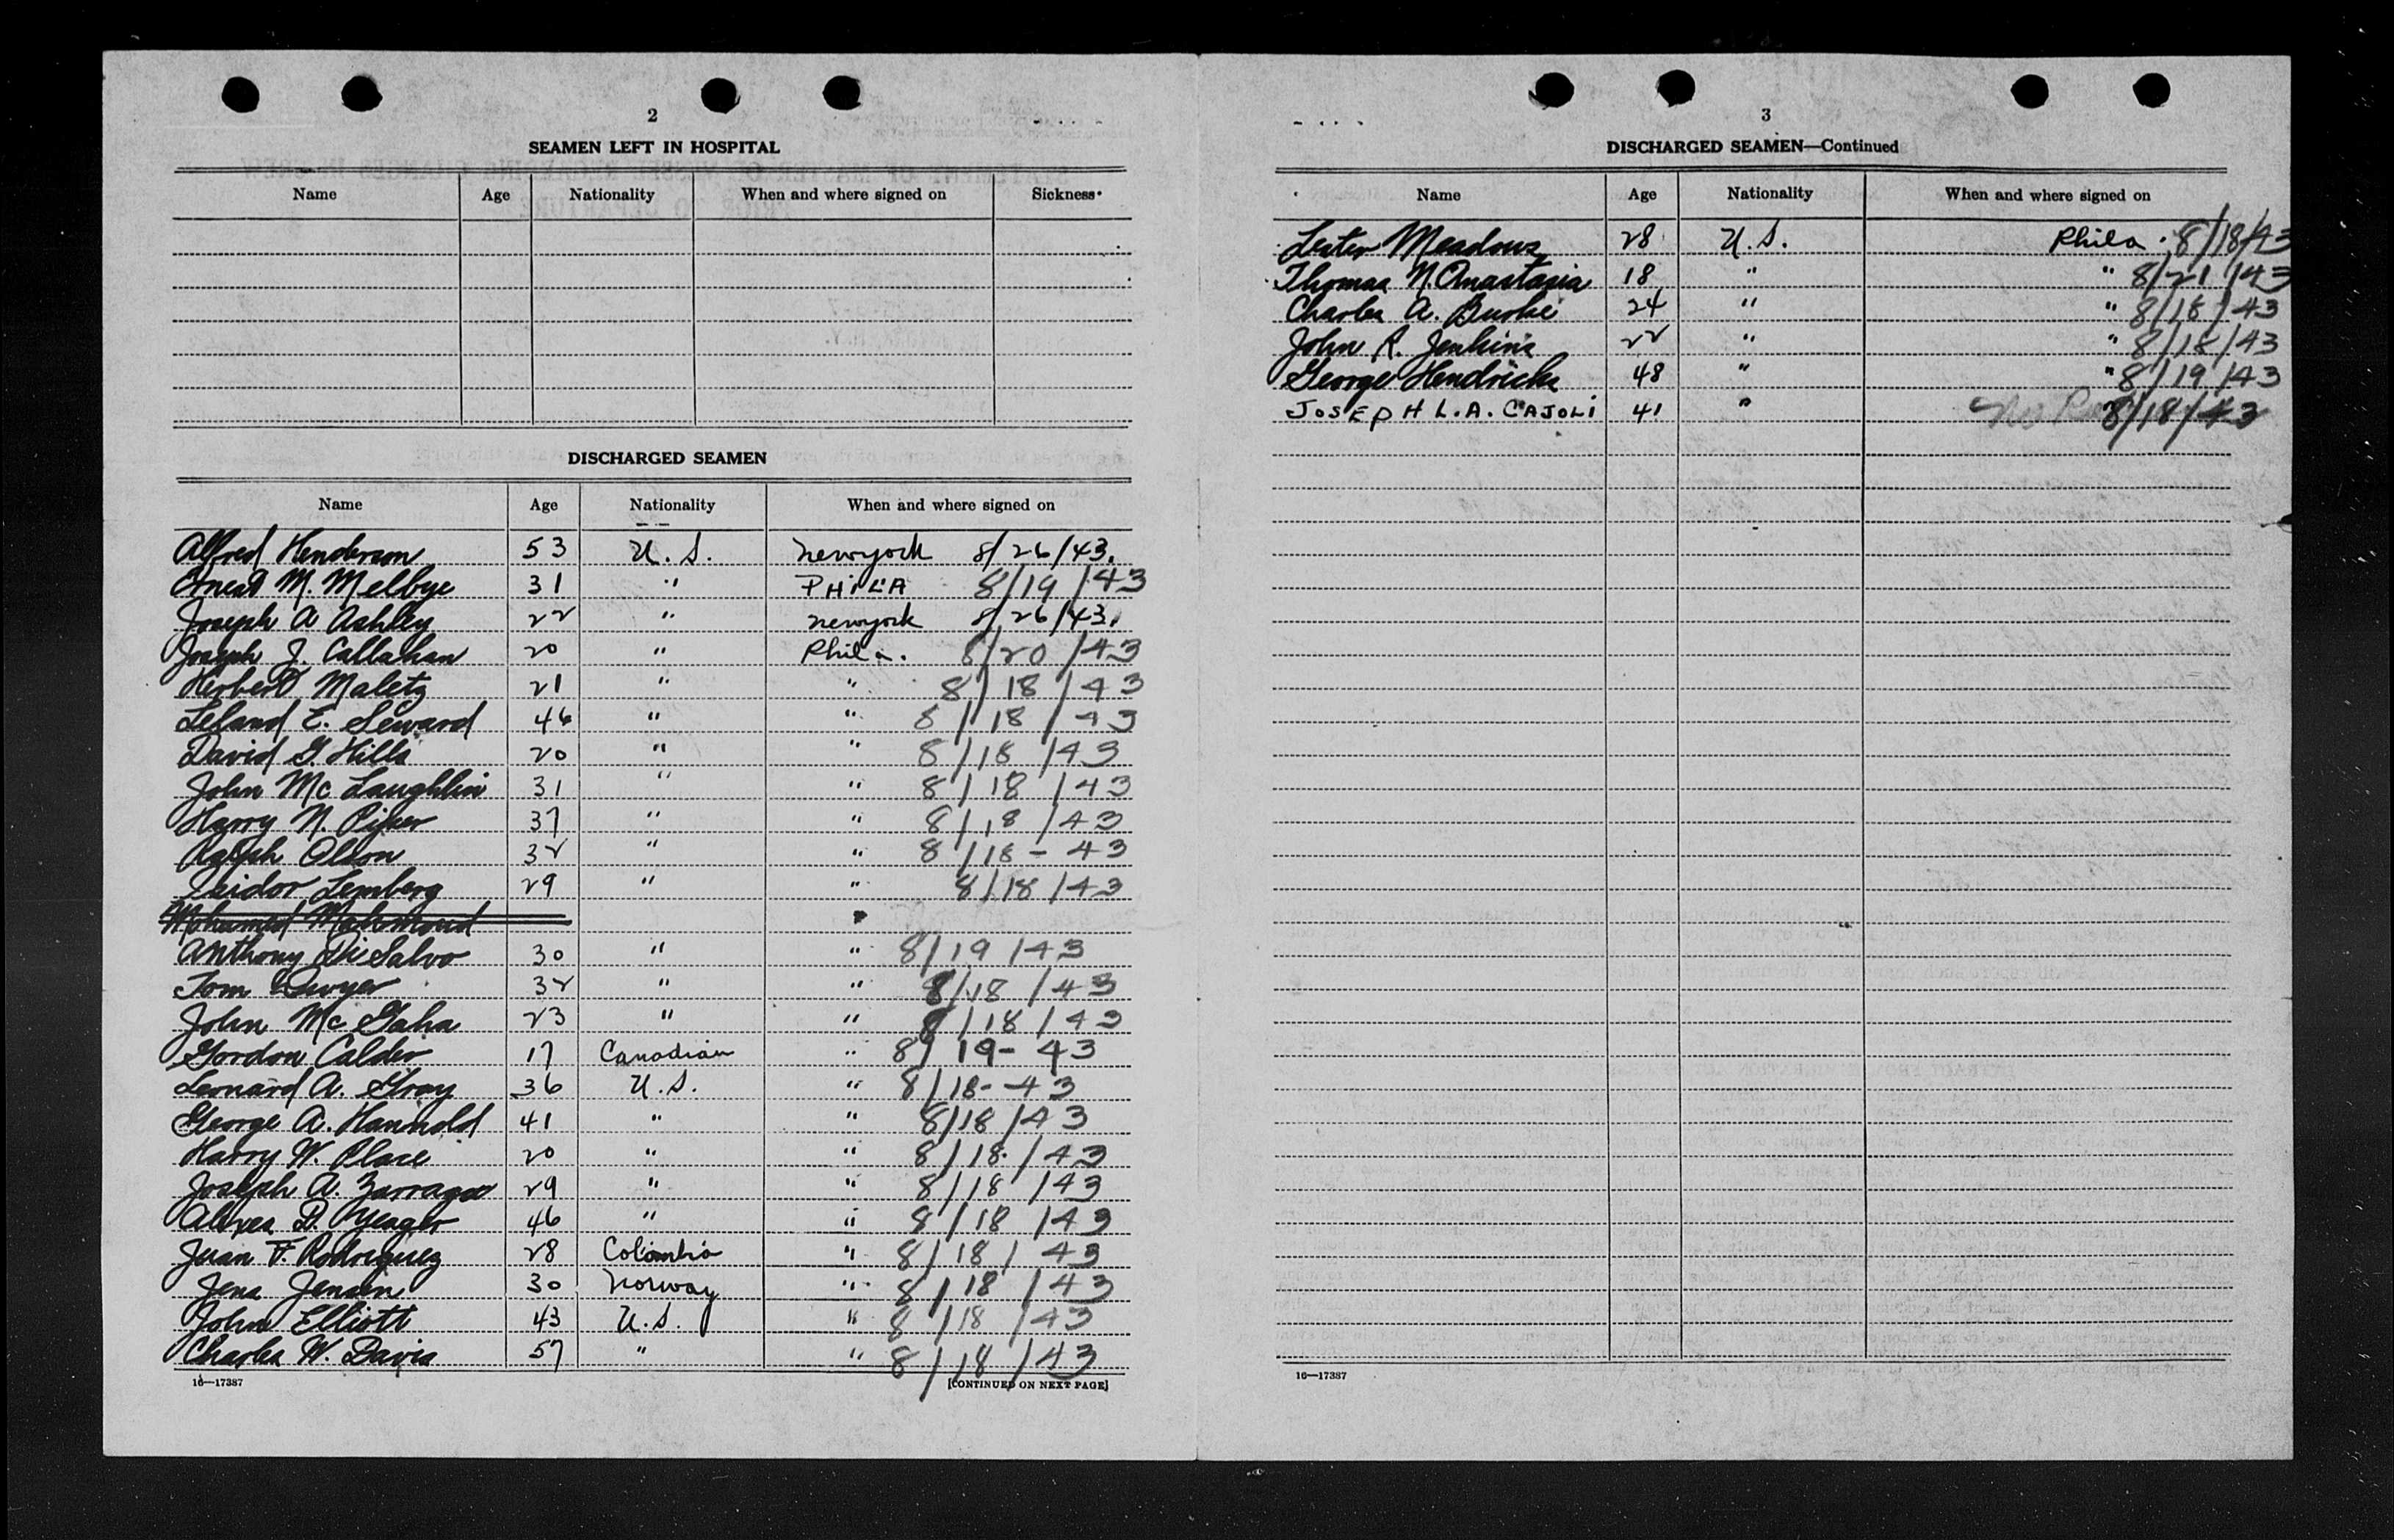 2
SEAMEN LEFT IN HOSPITAL
Name Age Nationality When and where signed on Sickness
DISCHARGED SEAMEN
Name Age Nationality When and where signed on
Alfred Henderson 53 U.S. Newyork 8/26/43.
Ernest M. Melbye 31 " PHILA 8/19/43
Joseph A Ashley 22 " Newyork 8/26/43.
Joseph J. Callahan 20 " Phila. 8/20/43
Herbert Maletz 21 " " 8/18/43
Leland E. Seward 46 " " 8/18/43
David G. Hills 20 " " 8/18/43
John McLaughlin 31 " " 8/18/43
Harry N. Piper 37 " " 8/18/43
Ralph Olson 32 " " 8/18-43
Isidor Lemberg 29 " " 8/18/43
Mohamed Mahmoud "
Anthony DiSalvo 30 " " 8/19/43
Tom Dwyer 32 " " 8/18/43
John McGaha 23 " " 8/18/43
Gordon Calder 17 Canadian " 8/19-43
Leonard A. Gray 36 U.S. " 8/18-43
George A. Hannold 41 " " 8/18/43
Harry W. Place 20 " " 8/18/43
Joseph A. 29 " " 8/18/43
D. Yeager 46 " " 8/18/43
Juan F. Rodriguez 28 Colombia " 8/18/43
Jens Jensen 30 Norway " 8/18/43
John Elliott 43 U.S. " 8/18/43
Charles W. Davis 57 " " 8/18/43
16—17387 [CONTINUED ON NEXT PAGE]
3
DISCHARGED SEAMEN—Continued
Name Age Nationality When and where signed on
Lester Meadows 28 U.S. Phila. 8/18/43
Thomas N. Anastasia 18 " " 8/21/43
Charles A. Burke 24 " " 8/18/43
John R. Jenkins 22 " " 8/18/43
George Hendricks 48 " " 8/19/43
JOSEPH L.A. CAJOLI 41 " 8/18/43
16—17387